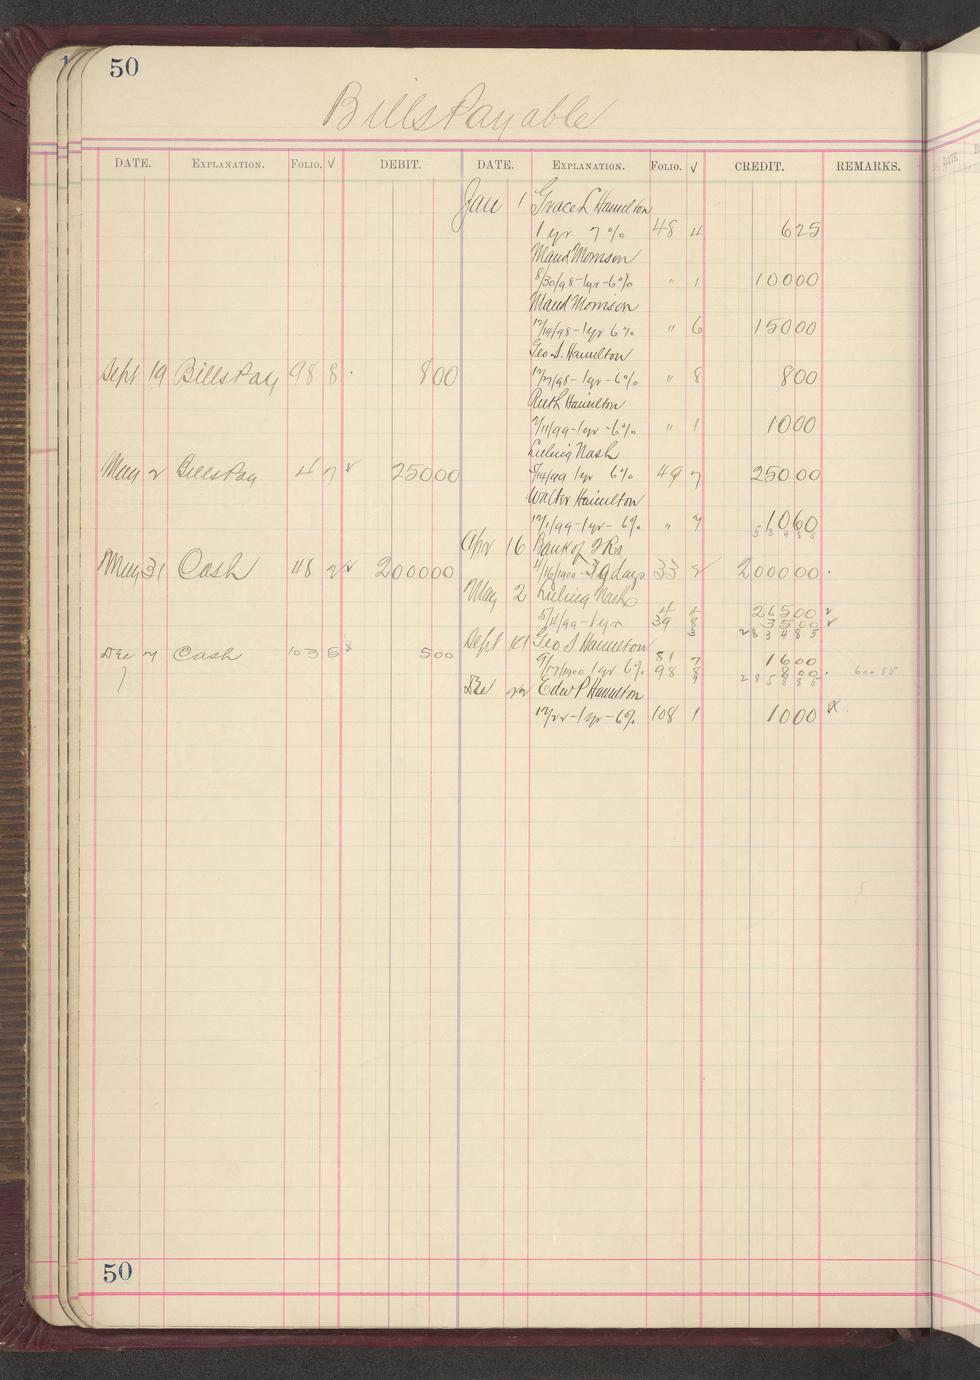 50
Bills Payable
DATE. EXPLANATION. FOLIO. √ DEBIT. DATE. EXPLANATION. FOLIO. √ CREDIT. REMARKS.
Jan 1 Grace L Hamilton
1 yr 7% 48 4 625
Maud Morrison
8/30/98-1yr-6% " 1 10000
Maud Morrison
12/14/98-1yr 6% " 6 15000
Geo S. Hamilton
Sept 19 Bills Pay 98 8 800 12/27/98-1yr-6% " 8 800
Ruth Hamilton
2/11/99-1yr-6% " 1 1000
Luling Nash
May 2 Bills Pay 4 7 √ 25000 5/4/99 1yr 6% 49 7 25000
Walter Hamilton
12/1/99-1yr-6% " 7 1060
53485
Apr 16 Bank of
May 31 Cash 48 2 √ 200000 4/16/1900 39 days 33 2 200000
May 2 Luling Nash
4 4 26500 √
5/4/99-1yr 39 8 3500 √
3 283485
Sept 19 Geo S Hamilton
Dec 7 Cash 103 5 500 81 7 1600
9/17/1900 1yr 6% 98 8 800
285885 600 85
Dec 22 Edw P Hamilton
12/22-1yr-6% 108 1 1000
50